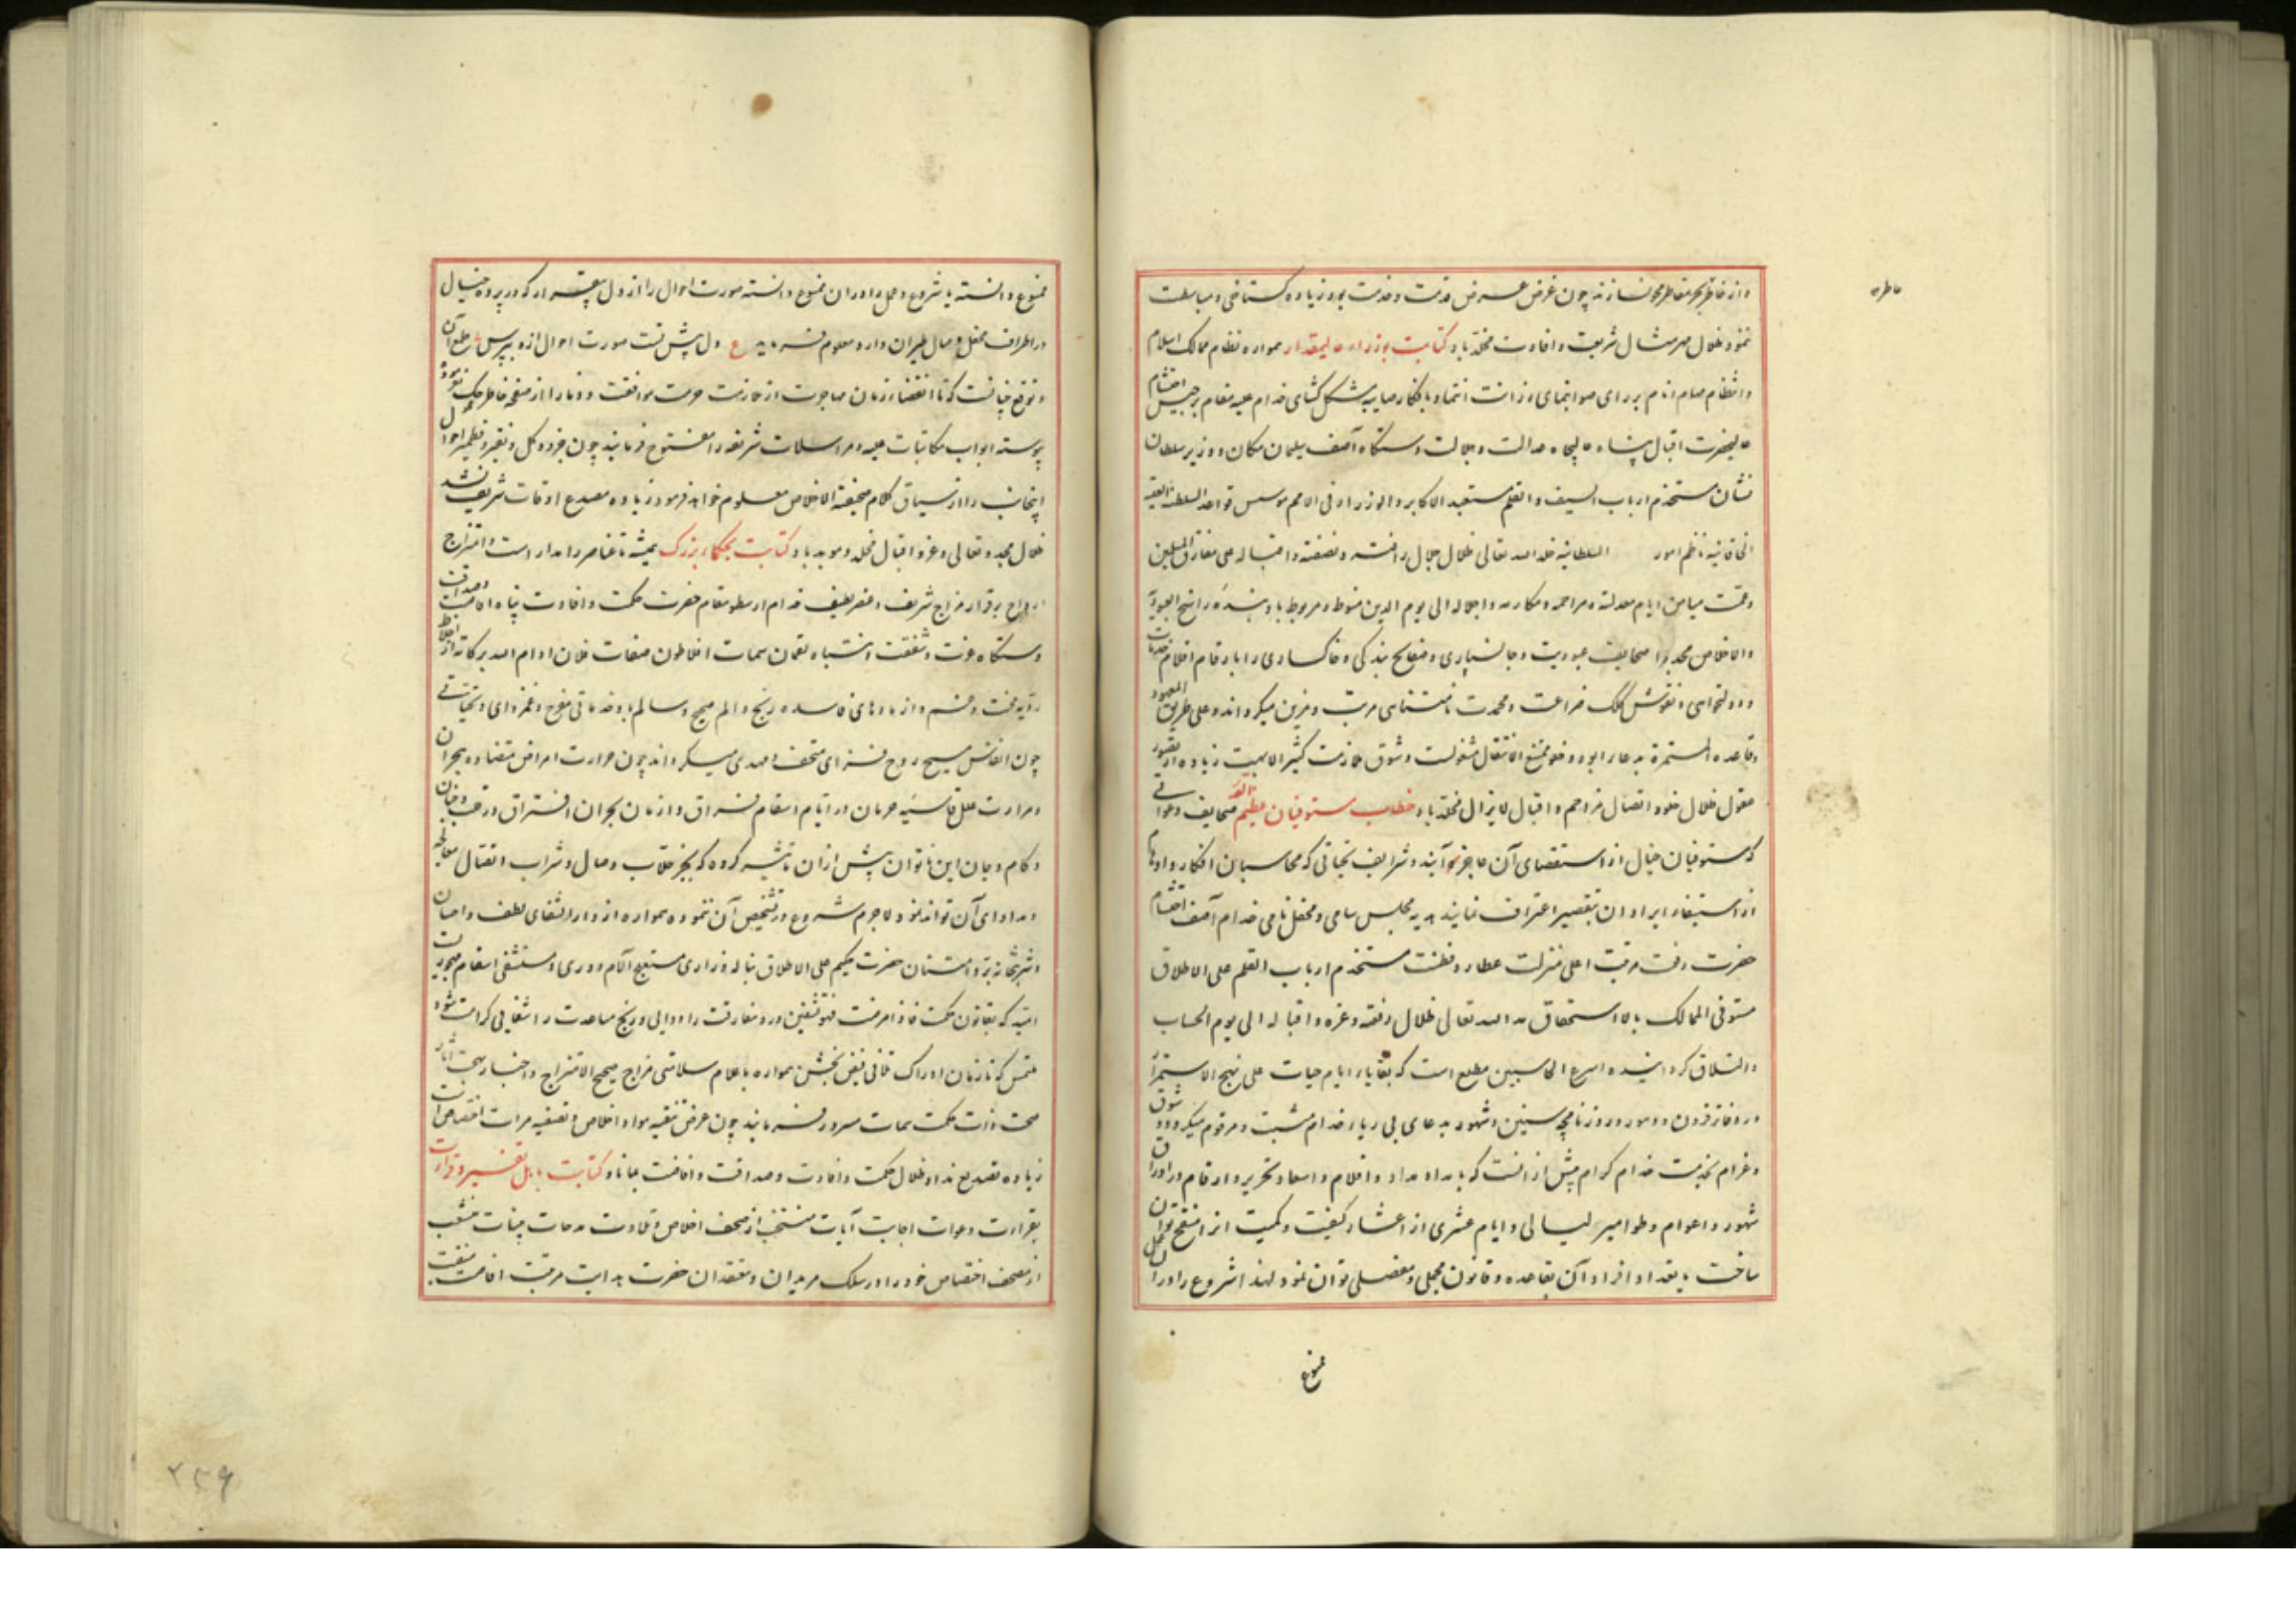 و از خاطر بحر مقاطر محو نسازند چون غرض عرض قدمت و خدمت بود زیاده گستاخی و مباسطت
ننمود ظلال مهر مثال شریعت و افادت مخلد باد کتابت بوزراء عالیمقدار همواره نظام ممالک اسلام
و انتظام مهام انام برای صوابنمای رزانت انتما و بافکار صایبه مشکل کشای خدام علیه مقام برجیس احتشام
عالیحضرت اقبال پناه عالیجاه عدالت و جلالت دستگاه آصف سلیمان مکان و وزیر سلطان
نشان مستخدم ارباب السیف و القلم مستعبد الاکابر و الوزراء فی الامم موسس قواعد السلطنة
الخاقانیه ناظم امور السلطانیه خلد الله تعالی ظلال جلال رافته و نصفته و اقباله علی مفارق المسلمین
و تحت میامن ایام معدلته و مراحمه و مکارمه و اجلاله الی یوم الدین منوط و مربوط باد بنده راسخ العبودیة
والاخلاص صحایف عبودیت و جانسپاری و صفایح بندگی و خاکساری را بارقام اقلام خدمات
و دولتخواهی و نقوش کلک ضراعت و محمدت نامتناهی مرتب و مزین میگرداند و علی طریق المعهود
وقاعده المستمرة بدعاء ابود و خلو ممتنع الانتقال مشغولست و شوق ملازمت کثیر الامیمنت زیاده از تصور
عقول ظلال خلود اتصال مراحم و اقبال لایزال مخلد باد خطاب مستوفیان عظیم القدر صحایف دعواتی
که مستوفیان خیال از استقصای آن عاجز آیند و شرایف تحیاتی که محاسبان افکار و اوهام
از استیفاء ایراد آن بتقصیر اعتراف نمایند هدیه مجلس سامی و محفل نامی خدام آصف احتشام
حضرت رفعت مرتبت اعلی منزلت عطارد فطنت مستخدم ارباب القلم علی الاطلاق
مستوفی الممالک بالاستحقاق مد الله تعالی ظلال رفعته و عزه و اقباله الی یوم الحساب
والتلاق گردانیده اسرع الحاسبین مطلع است که بقایاء ایام حیات علی نهج الاستمرار
در دفاتر قرون و دهور و روزنامچه سنین و شهور بدعای بی ریاء خدام مثبت و مرقوم میگردد و شوق
و غرام بخدمت خدام کرام بیش از آنست که بامداد مداد و اقلام و اسعاد تحریر و ارقام در اوراق
شهور و اعوام و طوامیر لیالی و ایام عشری از اعشار کیفیت و کمیت انرا منقح توان
ساخت یا بتعداد افراد آن بقاعده و قانون مجملی و مفصلی توان نمود لهذا شروع را در آن
ممنوع
ممنوع دانسته یا شروع و حل را در آن ممنوع دانسته صورت احوال را از دل بیقرار که در پرده خیال
در اطراف محفل وصال طیران دارد معلوم فرمایند ع دل پیش تست صورت احوال ازو بپرس
و توقع چنانست که تا انقضاء زمان مهاجرت از ملازمت حرمت موافقت و وفا را از صفحه خاطر حک نفرموده
پیوسته ابواب مکاتبات علیه و مراسلات شریفه را مفتوح فرمایند چون جزو و کل و نقیر و قطمیر احوال
اینجانب را از سیاق کلام صحیفة الاخلاص معلوم خواهد فرمود زیاده مصدع اوقات شریف نشد
ظلال مجد و تعالی و عز و اقبال مخلد و موبد باد کتابت بحکماء بزرک همیشه تا عناصر را مدار است و امتزاج
ارواح برقرار مزاج شریف و عنصر لطیف خدام ارسطو مقام حضرت حکمت و افادت پناه
دستکاه عزت و شفقت انتباه لقمان سمات افلاطون صفات فلان ادام الله برکاته از اختلاط
ردیه محنت و غم و از مادهای فاسده رنج و الم صحیح و سالم باد خدماتی مفرح و غمزدای و تحیاتی
چون انفاس مسیح روح فزای متحف و مهدی میگرداند چون حرارت امراض متضاده هجران
و مرارت علل قاسیه حرمان در ایام اسقام فراق و ازمان بحران افتراق در قلب و جنان
و کام و جان این ناتوان بیش از آن تاثیر کرده که بجز جلاب وصال و شراب اتصال معالجه
و مداوای آن تواند نمود لاجرم شروع در تشخیص آن ننموده همواره از دار الشفای لطف و احسان
و شربتخانه بر و امتنان حضرت حکیم علی الاطلاق بناله و زاری مستعلج آلام دوری و مستشفی اسقام مهجوریست
امید که بقانون حکمت درد مفارقت را دوایی و رنج مباعدت را شفایی کرامت شود
ملتمس که تا زمان ادراک تلاقی فیض بخش همواره باعلام سلامتی مزاج صحیح الامتزاج و اخبار بهجت آثار
صحت ذات حکمت سمات مسرور فرمایند چون غرض تنقیه مواد اخلاص و تصفیه مرات اختصاص است
زیاده تصدیع نداد ظلال حکمت و افادت و صداقت و افاضت بماناد کتابت باهل تفسیر و قراءت
بقراءت دعوات اجابت آیات منتخب از صحف اخلاص و تلاوت مدحات بینات منشعب
از مصحف اختصاص خود را در سلک مریدان و معتقدان حضرت هدایت مرتبت افاضت منقبت
۲۵۹